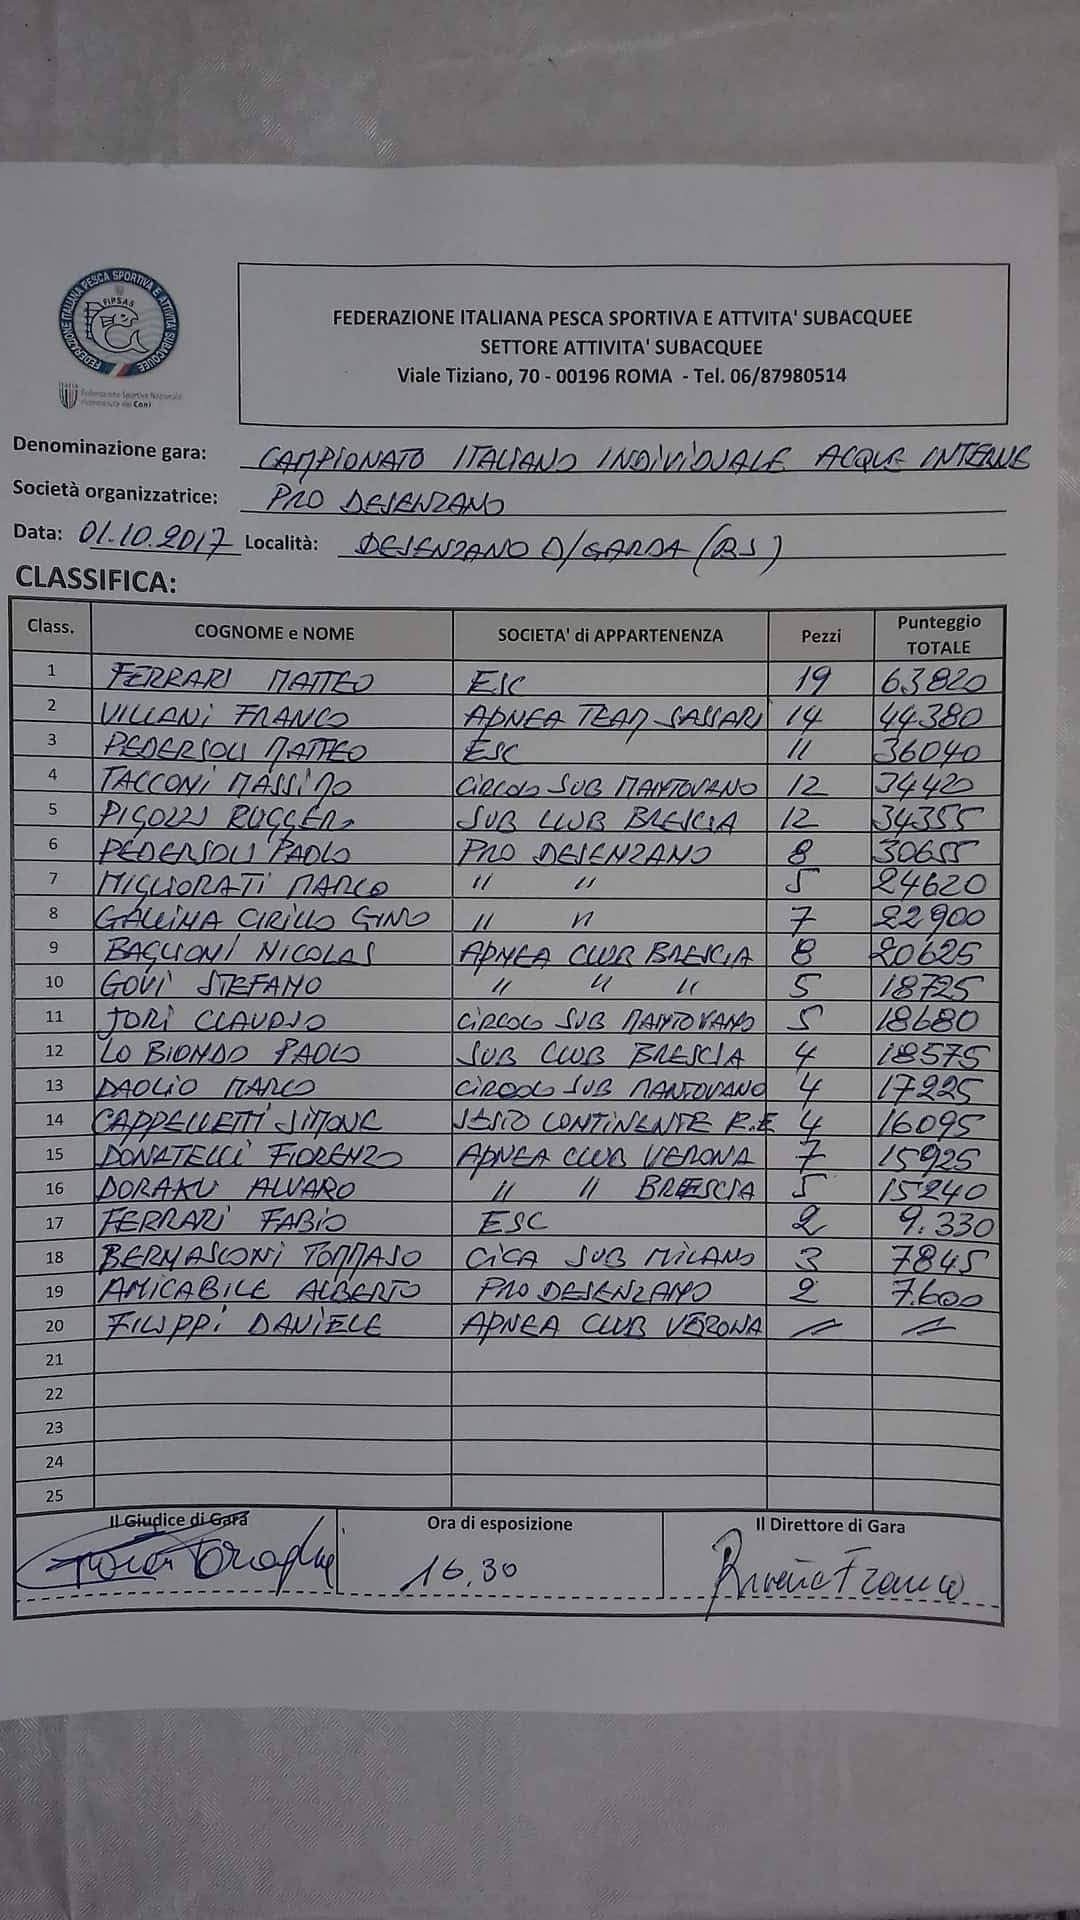 FEDERAZIONE ITALIANA PESCA SPORTIVA E ATTIVITA' SUBACQUEE
FIPSAS
Italia
Federazione Sportiva Nazionale
riconosciuta dal Coni
FEDERAZIONE ITALIANA PESCA SPORTIVA E ATTVITA' SUBACQUEE
SETTORE ATTIVITA' SUBACQUEE
Viale Tiziano, 70 - 00196 ROMA - Tel. 06/87980514
Denominazione gara: CAMPIONATO ITALIANO INDIVIDUALE ACQUE INTERNE
Società organizzatrice: PRO DESENZANO
Data: 01.10.2017 Località: DESENZANO D/GARDA (BS)
CLASSIFICA:
Class. COGNOME e NOME SOCIETA' di APPARTENENZA Pezzi Punteggio TOTALE
1 FERRARI MATTEO ESC 19 63820
2 VILLANI FRANCO APNEA TEAM SASSARI 14 44380
3 PEDERSOLI MATTEO ESC 11 36040
4 TACCONI MASSIMO CIRCOLO SUB MANTOVANO 12 34420
5 PIGOZZI RUGGERO SUB CLUB BRESCIA 12 34355
6 PEDERSOLI PAOLO PRO DESENZANO 8 30655
7 MIGLIORATI MARCO " " 5 24620
8 GALLINA CIRILLO GINO " " 7 22900
9 BAGLIONI NICOLAS APNEA CLUB BRESCIA 8 20625
10 GOVI STEFANO " " " 5 18725
11 JORI CLAUDIO CIRCOLO SUB MANTOVANO 5 18680
12 LO BIONDO PAOLO SUB CLUB BRESCIA 4 18575
13 DAOLIO MARCO CIRCOLO SUB MANTOVANO 4 17225
14 CAPPELLETTI SIMONE SESTO CONTINENTE R.E 4 16095
15 DONATELLI FIORENZO APNEA CLUB VERONA 7 15925
16 DORAKU ALVARO " " BRESCIA 5 15240
17 FERRARI FABIO ESC 2 9.330
18 BERNASCONI TOMMASO CICA SUB MILANO 3 7845
19 AMICABILE ALBERTO PRO DESENZANO 2 7.600
20 FILIPPI DANIELE APNEA CLUB VERONA
21
22
23
24
25
Il Giudice di Gara Ora di esposizione Il Direttore di Gara
16,30 Franco